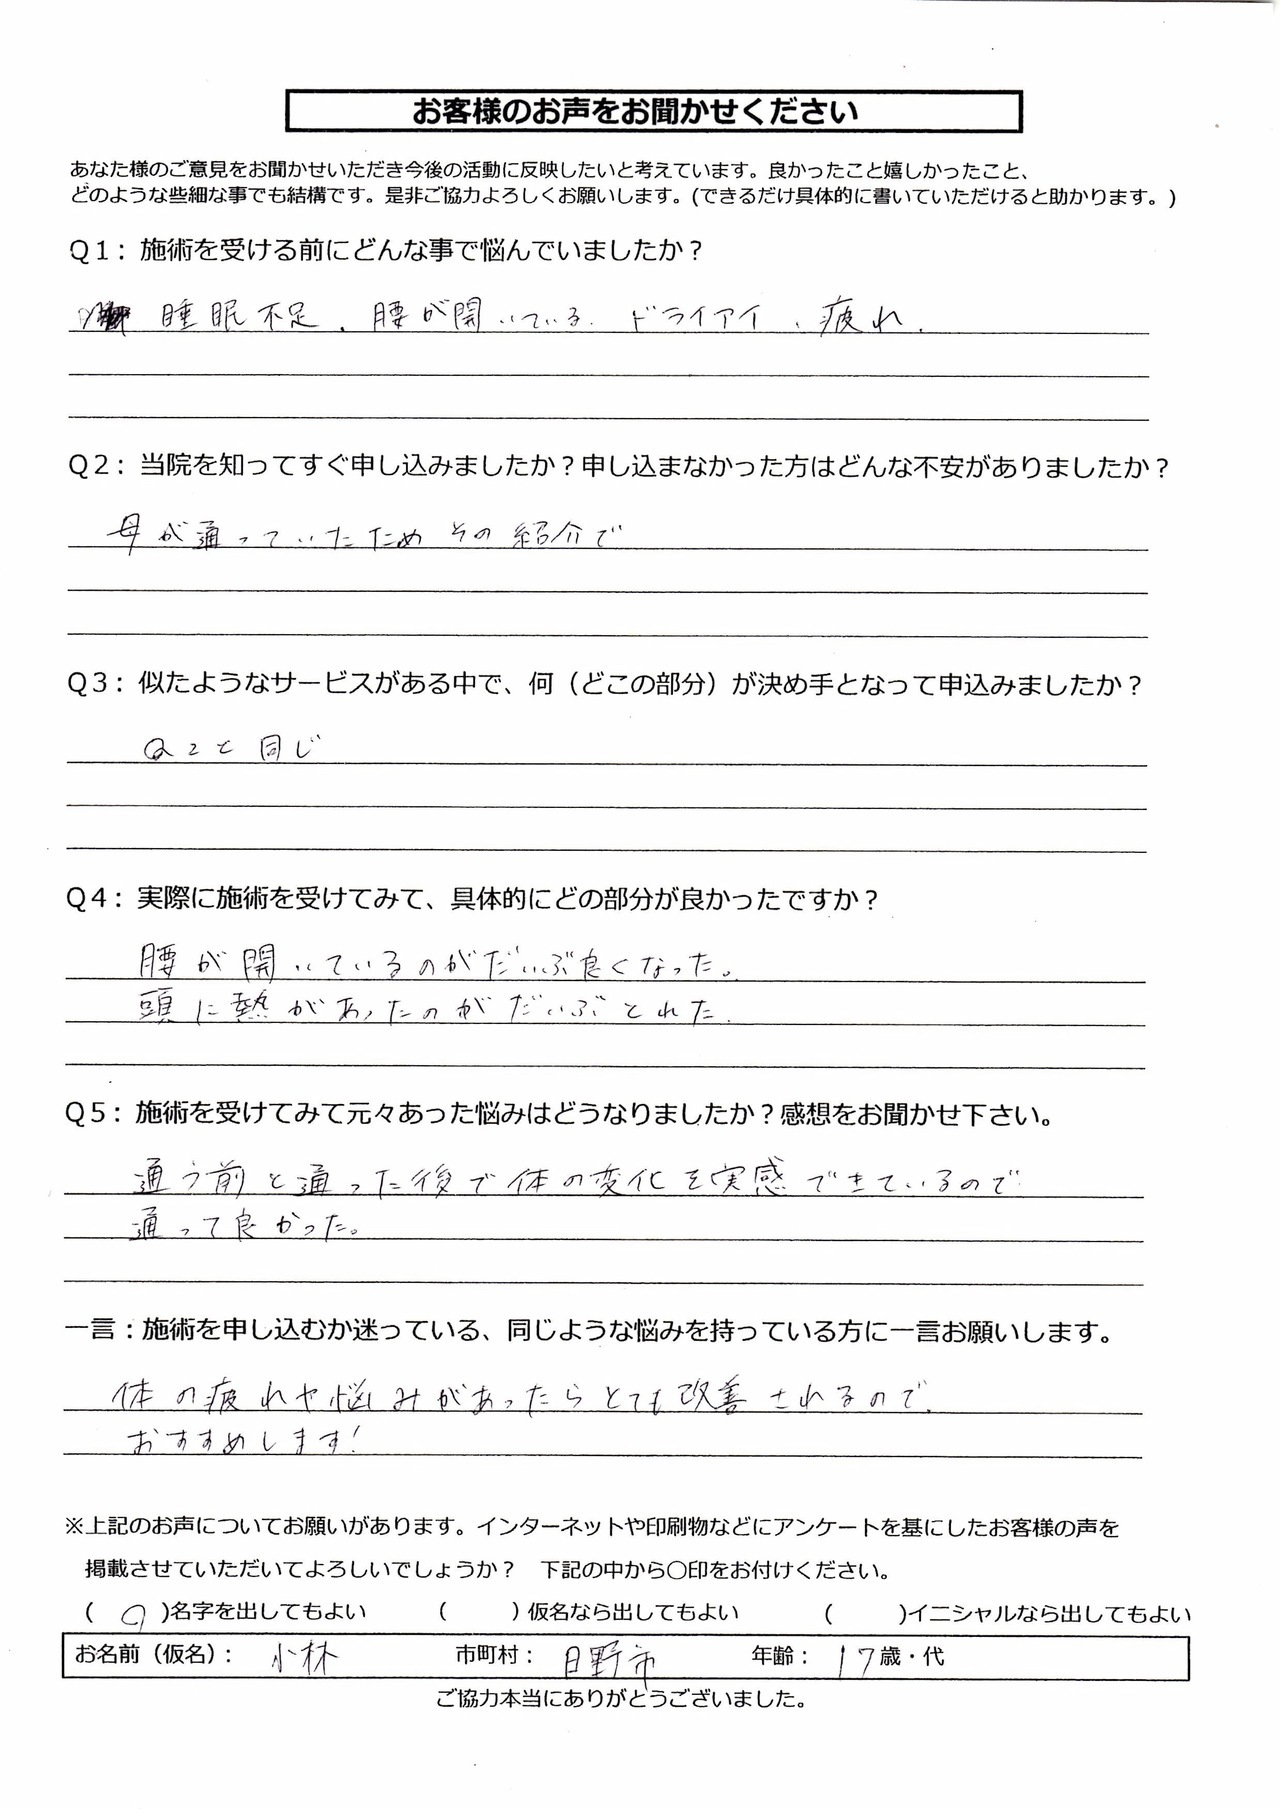 お客様のお声をお聞かせください
あなた様のご意見をお聞かせいただき今後の活動に反映したいと考えています。良かったこと嬉しかったこと、
どのような些細な事でも結構です。是非ご協力よろしくお願いします。(できるだけ具体的に書いていただけると助かります。)
Q1：施術を受ける前にどんな事で悩んでいましたか？
睡眠不足、腰が開いている、ドライアイ、疲れ、
Q2：当院を知ってすぐ申し込みましたか？申し込まなかった方はどんな不安がありましたか？
母が通っていたためその紹介で
Q3：似たようなサービスがある中で、何（どこの部分）が決め手となって申込みましたか？
Q2と同じ
Q4：実際に施術を受けてみて、具体的にどの部分が良かったですか？
腰が開いているのがだいぶ良くなった。
頭に熱があったのがだいぶとれた。
Q5：施術を受けてみて元々あった悩みはどうなりましたか？感想をお聞かせ下さい。
通う前と通った後で体の変化を実感できているので
通って良かった。
一言：施術を申し込むか迷っている、同じような悩みを持っている方に一言お願いします。
体の疲れや悩みがあったらとても改善されるので、
おすすめします！
※上記のお声についてお願いがあります。インターネットや印刷物などにアンケートを基にしたお客様の声を
掲載させていただいてよろしいでしょうか？　下記の中から〇印をお付けください。
(　○　)名字を出してもよい　　(　　　)仮名なら出してもよい　　(　　　)イニシャルなら出してもよい
お名前（仮名）：　小林　　市町村：　日野市　　年齢：　17歳・代
ご協力本当にありがとうございました。